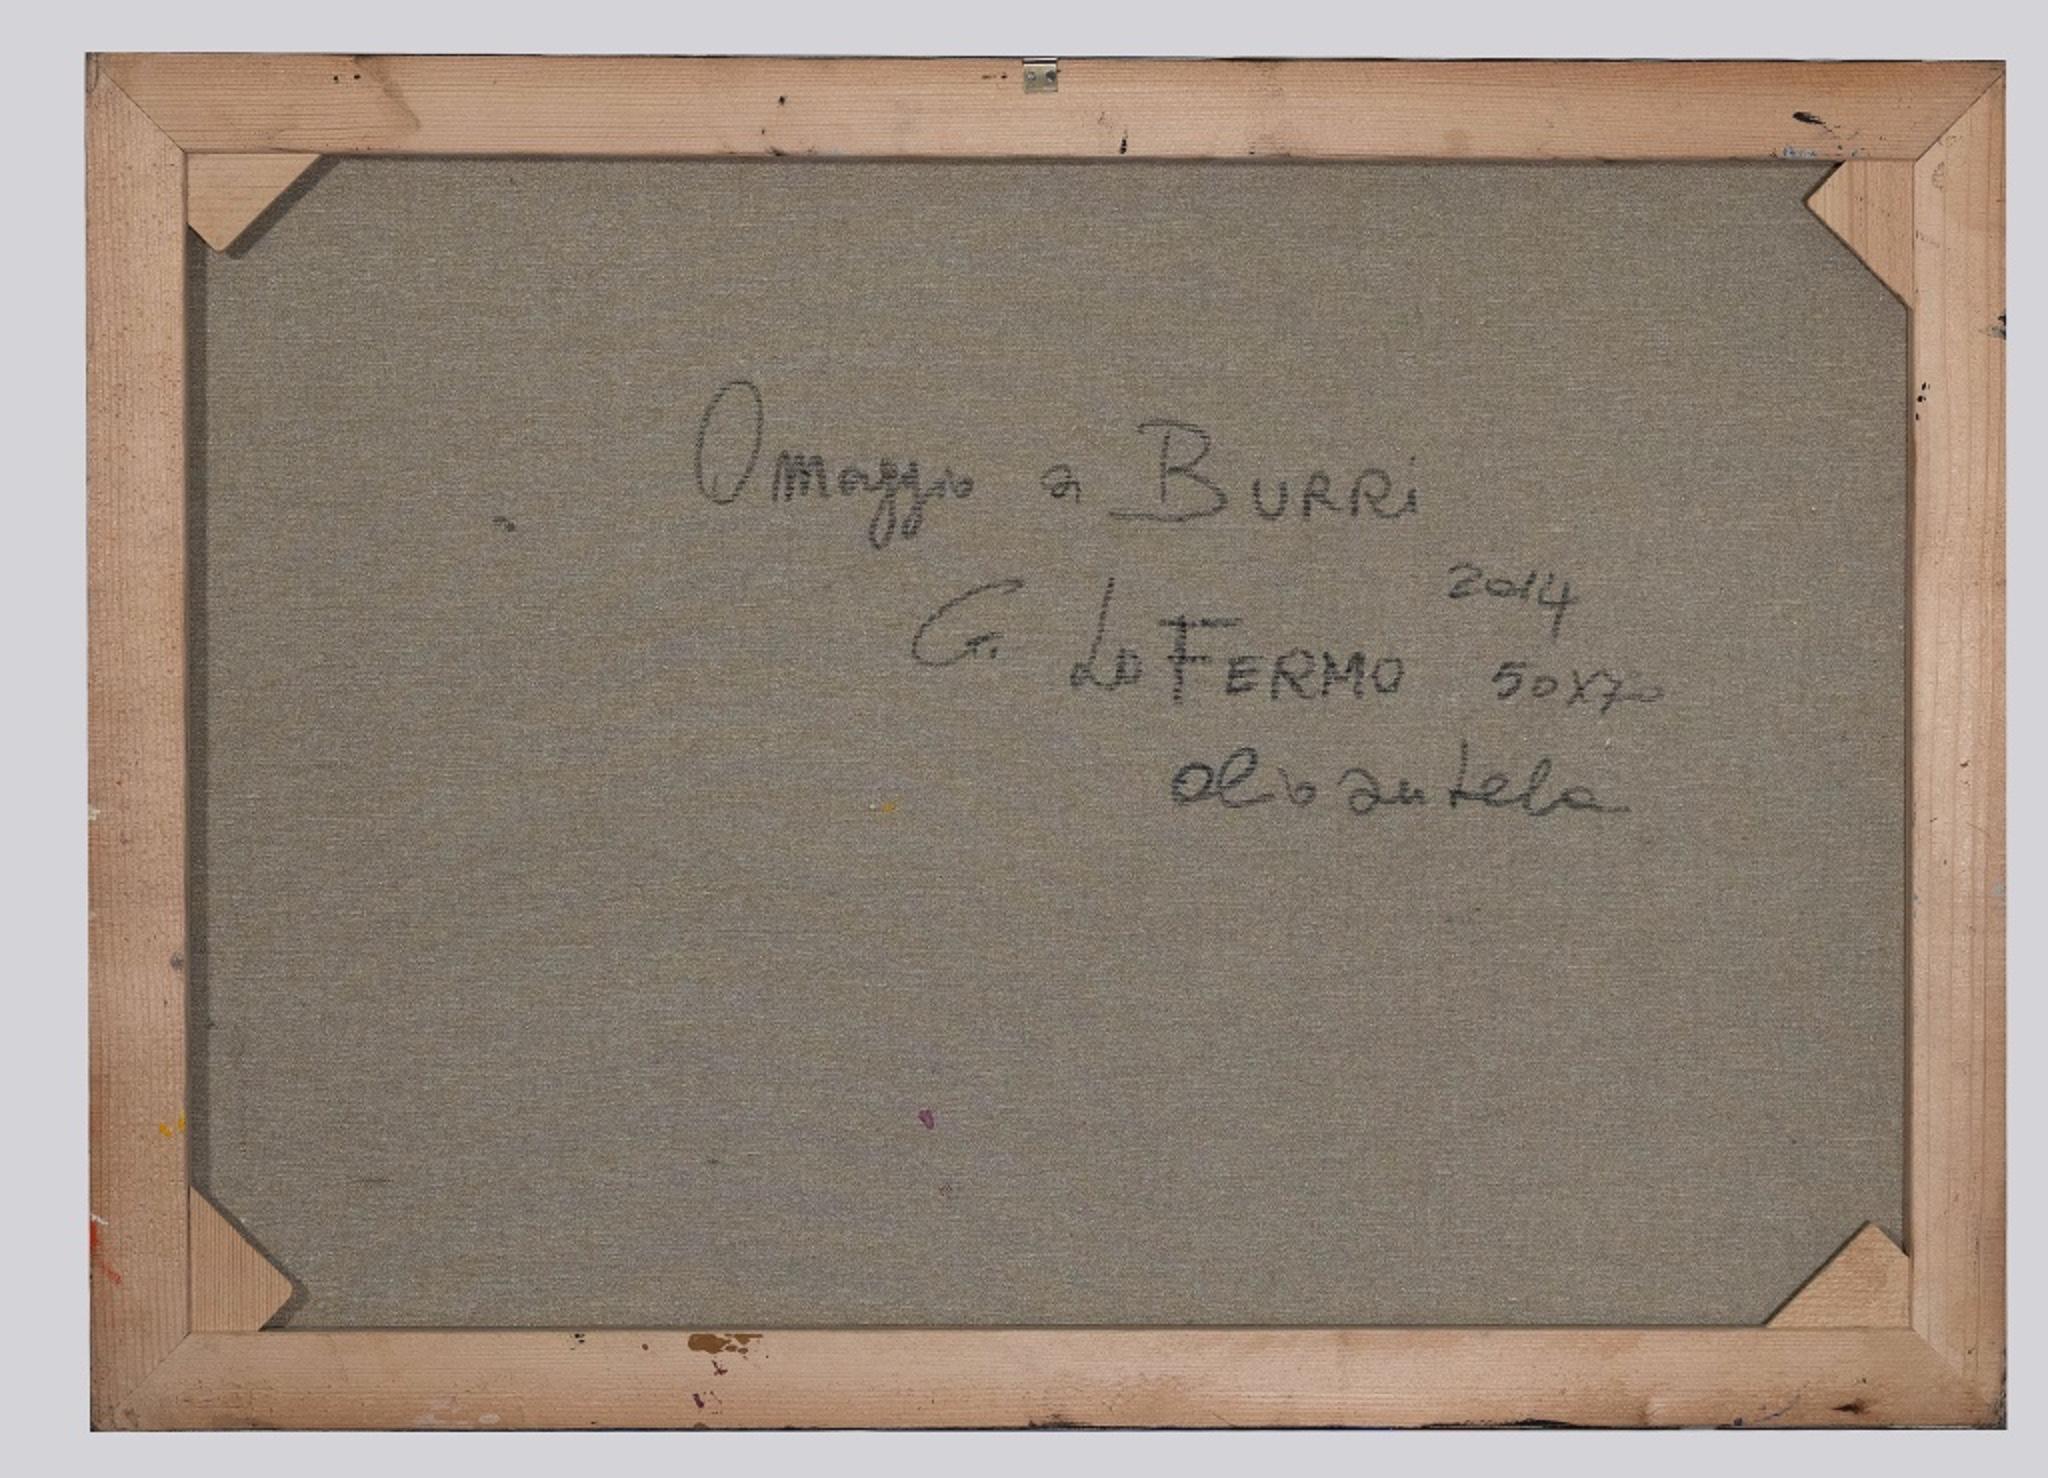 Omaggio a BURRi
2014
G. Lo FERMO 50x70
olio su tela